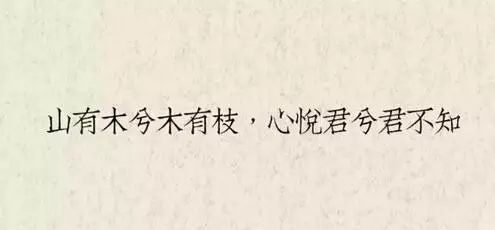 山有木兮木有枝，心悅君兮君不知